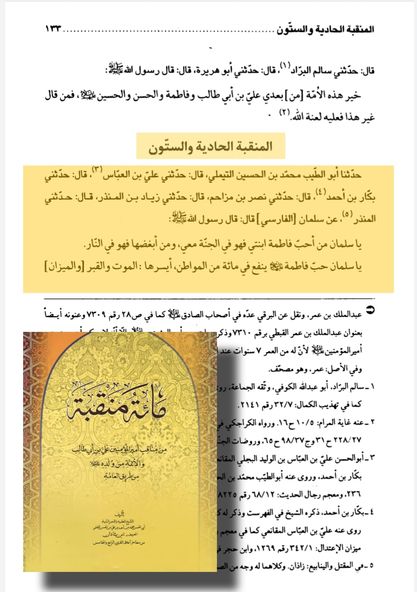 المنقبة الحادية والستّون ........................................ ١٣٣
قال: حدّثني سالم البرّاد(١)، قال: حدّثني أبو هريرة، قال: قال رسول الله ﷺ:
خير هذه الأمّة [من] بعدي عليّ بن أبي طالب وفاطمة والحسن والحسين ﷺ، فمن قال
غير هذا فعليه لعنة الله.(٢)
المنقبة الحادية والستّون
حدّثنا أبو الطيّب محمّد بن الحسين التيملي، قال: حدّثني عليّ بن العبّاس(٣)، قال: حدّثني
بكّار بن أحمد(٤)، قال: حدّثني نصر بن مزاحم، قال: حدّثني زياد بن المنذر، قال: حدّثني
المنذر(٥)، عن سلمان [الفارسي] قال: قال رسول الله ﷺ:
يا سلمان من أحبّ فاطمة ابنتي فهو في الجنّة معي، ومن أبغضها فهو في النّار.
يا سلمان حبّ فاطمة ينفع في مائة من المواطن، أيسرها: الموت والقبر [والميزان]
عبدالملك بن عمر، ونقل عن البرقي عدّه في أصحاب الصادق كما في ص٢٨ رقم ٧٣٠٩ وعنونه أيضاً
بعنوان عبدالملك بن عمر القبطي برقم ٧٣١٠ وذكر
أميرالمؤمنين لأنّ له من العمر ٧ سنوات عند
وفي الأصل: عمر، وهو مصحّف.
١ ـ سالم البرّاد، أبو عبدالله الكوفي، وثّقه الجماعة،
كما في تهذيب الكمال: ٣٢/٧ رقم ٢١٤١.
٢ ـ عنه غاية المرام: ١٠/٥ ح١٦. ورواه الكراجكي في
٢٢٨/٢٧ ح٣١ وج٣٧/٩٨ ح٦٥، وروضات
٣ ـ أبوالحسن عليّ بن العبّاس بن الوليد البجلي
بكّار بن أحمد، وذكر روى عنه أبوالطيّب
٢٣٦. ومعجم رجال الحديث: ٦٨/١٢ رقم ٨٢٢٥
٤ ـ بكّار بن أحمد، ذكره الشيخ في الفهرست وذكر له
روى عنه عليّ بن العبّاس المقانعي كما في
ميزان الإعتدال: ٣٤٢/١ رقم ١٢٦٩، وابن حجر في
٥ ـ في المقتل والينابيع: زاذان. وكلاهما له وجه من
مائة منقبة
من مناقب أميرالمؤمنين علي بن أبي طالب
والأئمة من ولده
من طريق العامة